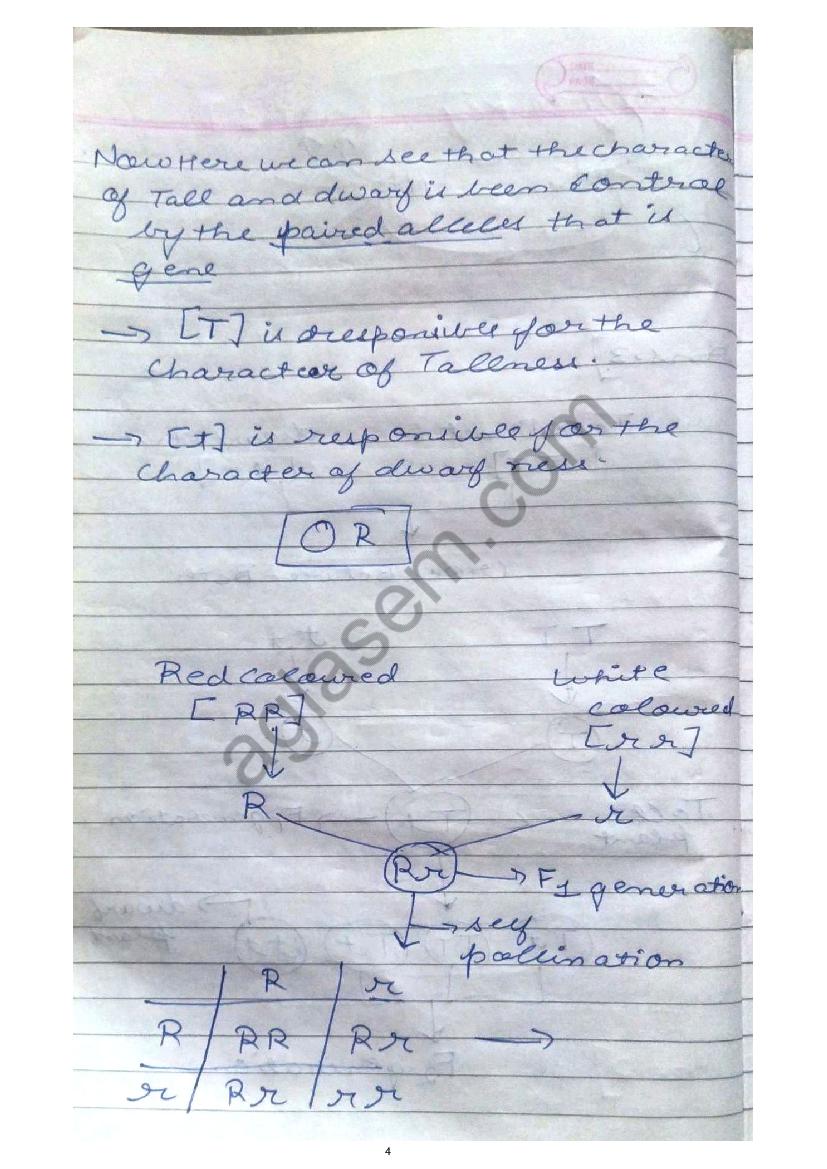 Now Here we can see that the character
of Tall and dwarf is been control
by the paired alleles that is
gene
→ [T] is responsible for the
Character of Tallness.
→ [t] is responsible for the
Character of dwarf ness.
OR
Red coloured White
[RR] coloured
[rr]
R r
Rr → F1 generation
→ self
pollination
R r
R RR Rr →
r Rr rr
aglasem.com
4